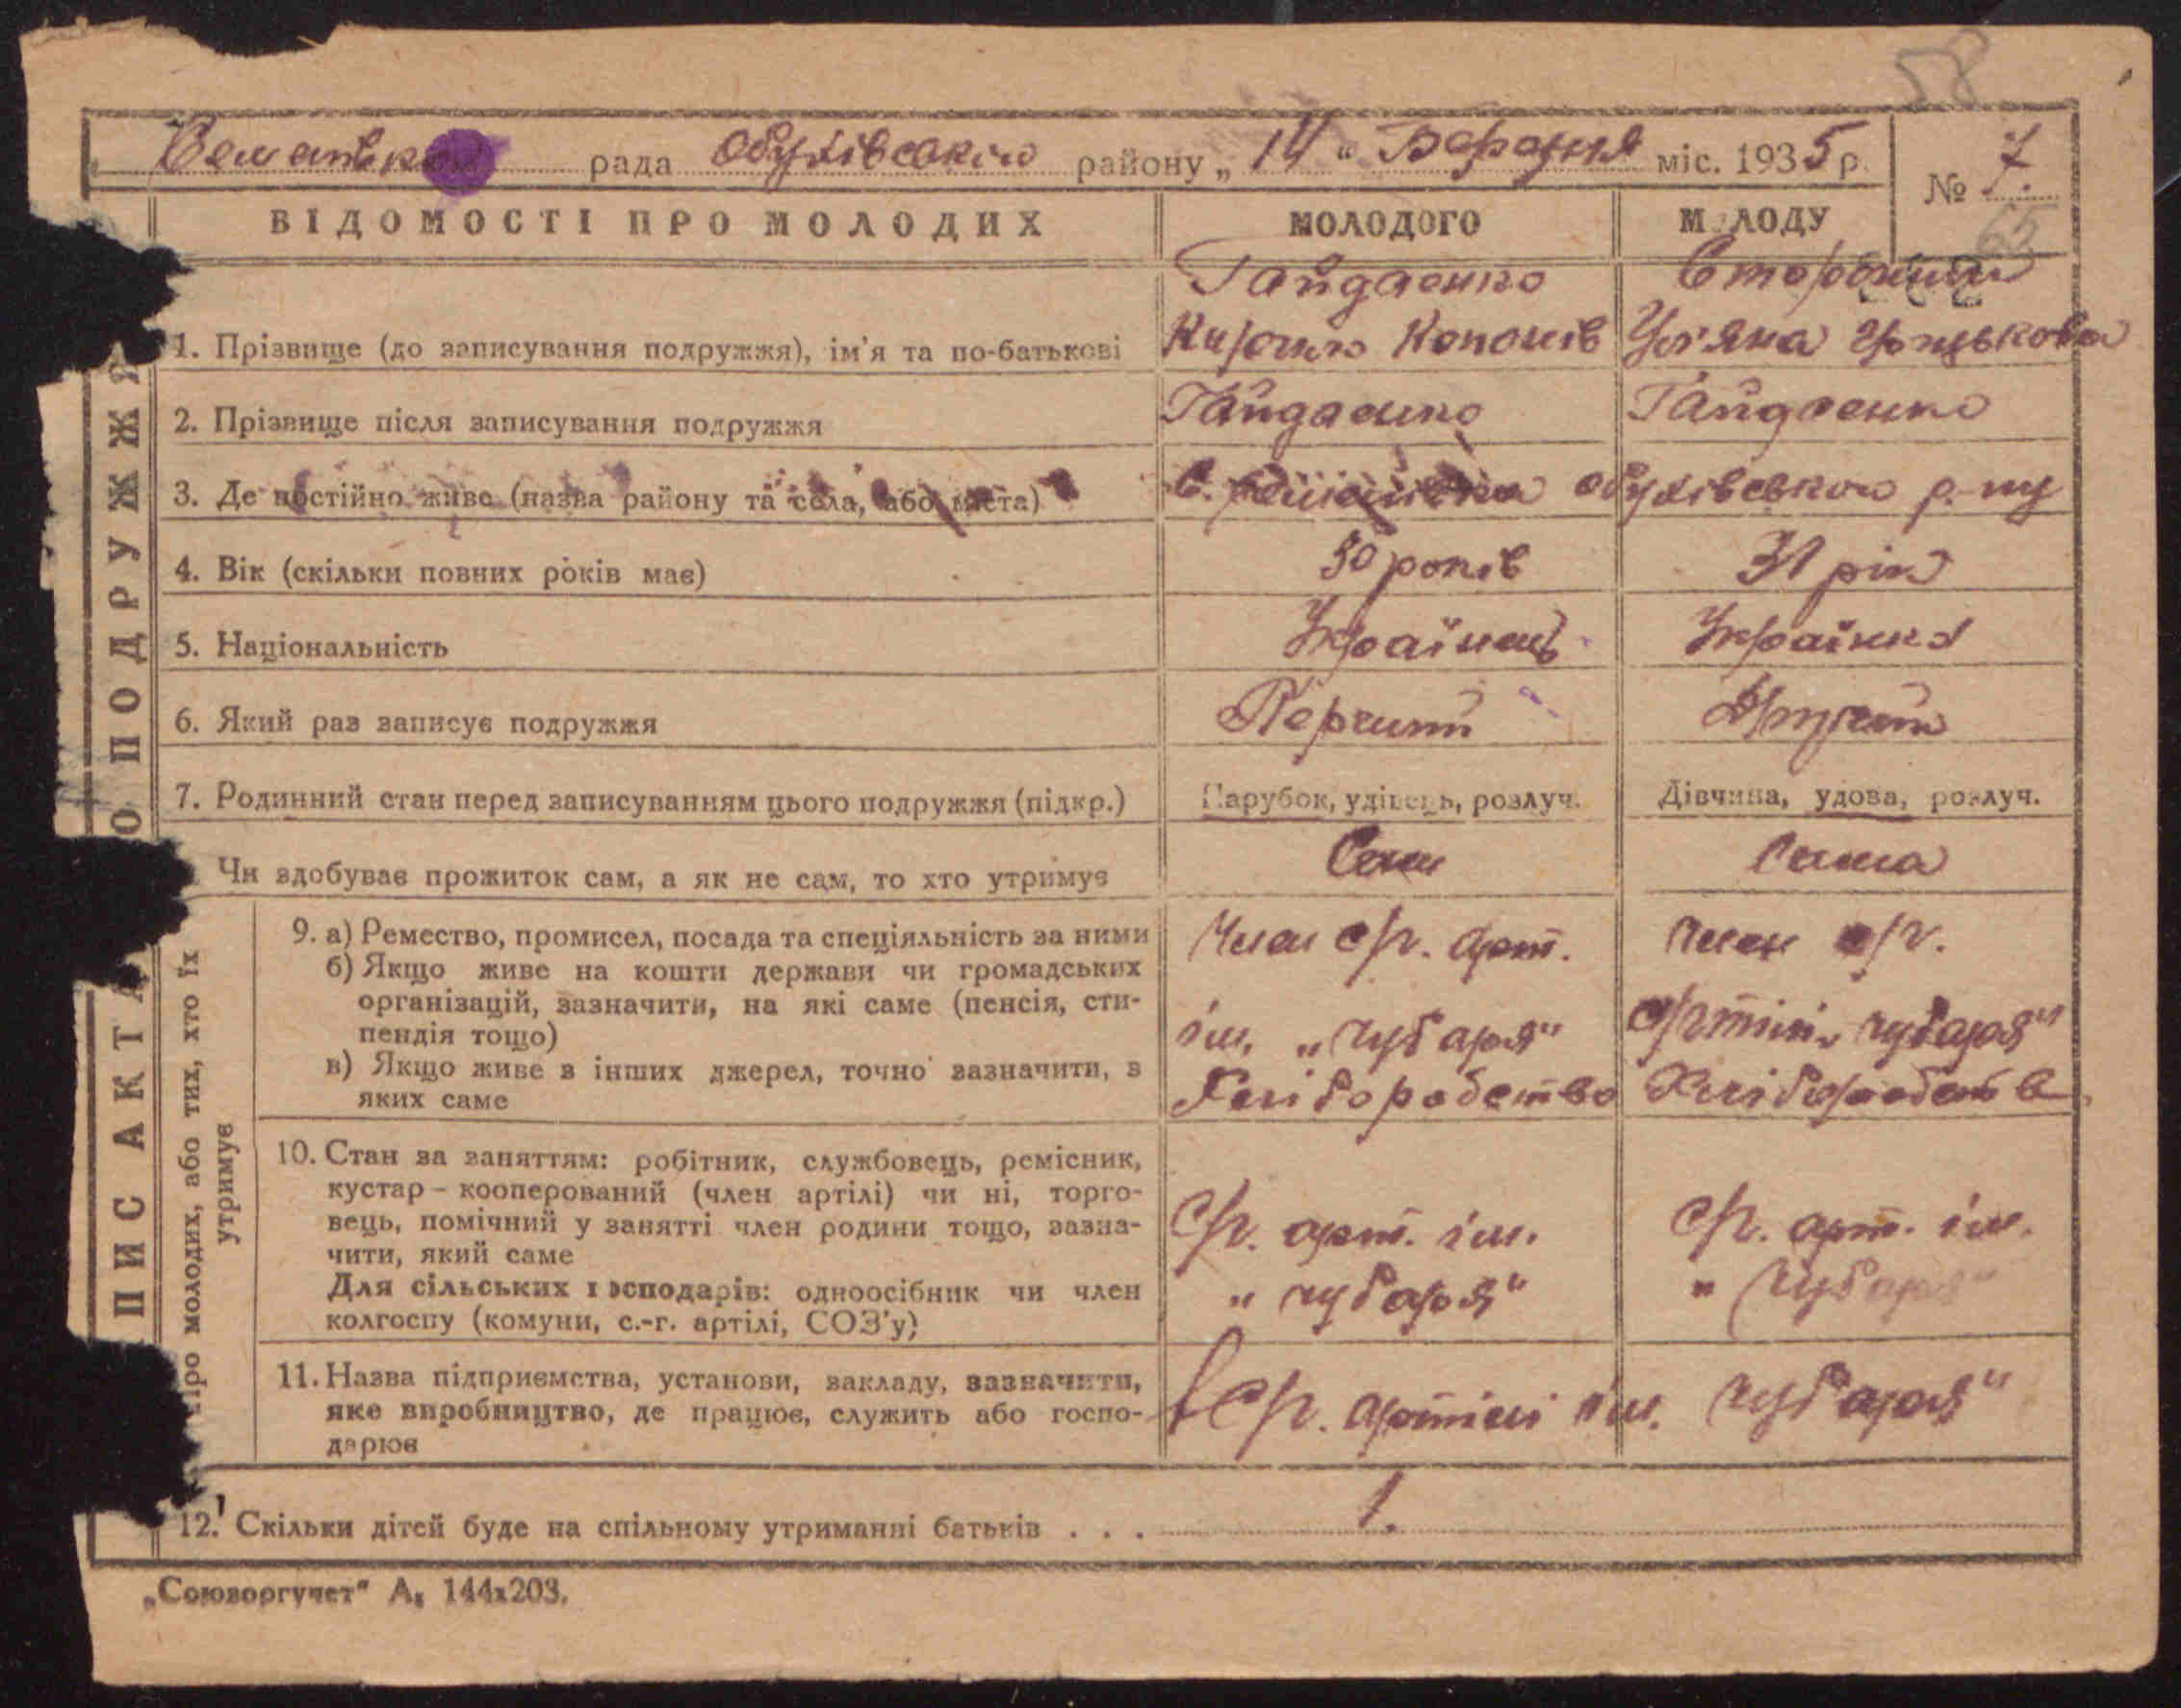 58
рада Обухівського району „ 14 “ Березня міс. 1935 р. № 7.
65
ВІДОМОСТІ ПРО МОЛОДИХ МОЛОДОГО МОЛОДУ
Гайдаенко
1. Прізвище (до записування подружжя), ім'я та по-батькові Кирило Уляна
2. Прізвище після записування подружжя Гайдаенко Гайдаенко
3. Де постійно живе (назва району та села, або міста) с. Обухівського р-ну
4. Вік (скільки повних років має) 30 років 31 рік
5. Національність Українець Українка
6. Який раз записує подружжя Перший Другий
7. Родинний стан перед записуванням цього подружжя (підкр.) Парубок, удівець, розлуч. Дівчина, удова, розлуч.
Чи здобуває прожиток сам, а як не сам, то хто утримує Сам Сама
про молодих, або тих, хто їх
утримує
9. а) Ремество, промисел, посада та спеціяльність за ними Член с/г. арт. член с/г.
б) Якщо живе на кошти держави чи громадських
організацій, зазначити, на які саме (пенсія, сти-
пендія тощо) ім. „Чубаря“ „чубаря“
в) Якщо живе з інших джерел, точно зазначити, з
яких саме Хліборобство Хліборобств
10. Стан за заняттям: робітник, службовець, ремісник,
кустар – кооперований (член артілі) чи ні, торго-
вець, помічний у занятті член родини тощо, зазна- С/г. арт. ім. С/г. арт. ім.
чити, який саме
Для сільських господарів: одноосібник чи член „чубаря“ „Чубаря“
колгоспу (комуни, с.-г. артілі, СОЗ'у)
11. Назва підприємства, установи, закладу, зазначити,
яке виробництво, де працює, служить або госпо- С/г. артілі ім. Чубаря“
дарює
12. Скільки дітей буде на спільному утриманні батьків . . . 1.
ПИС АКТА О ПОДРУЖЖЯ
„Союзоргучет“ А₅ 144x203.